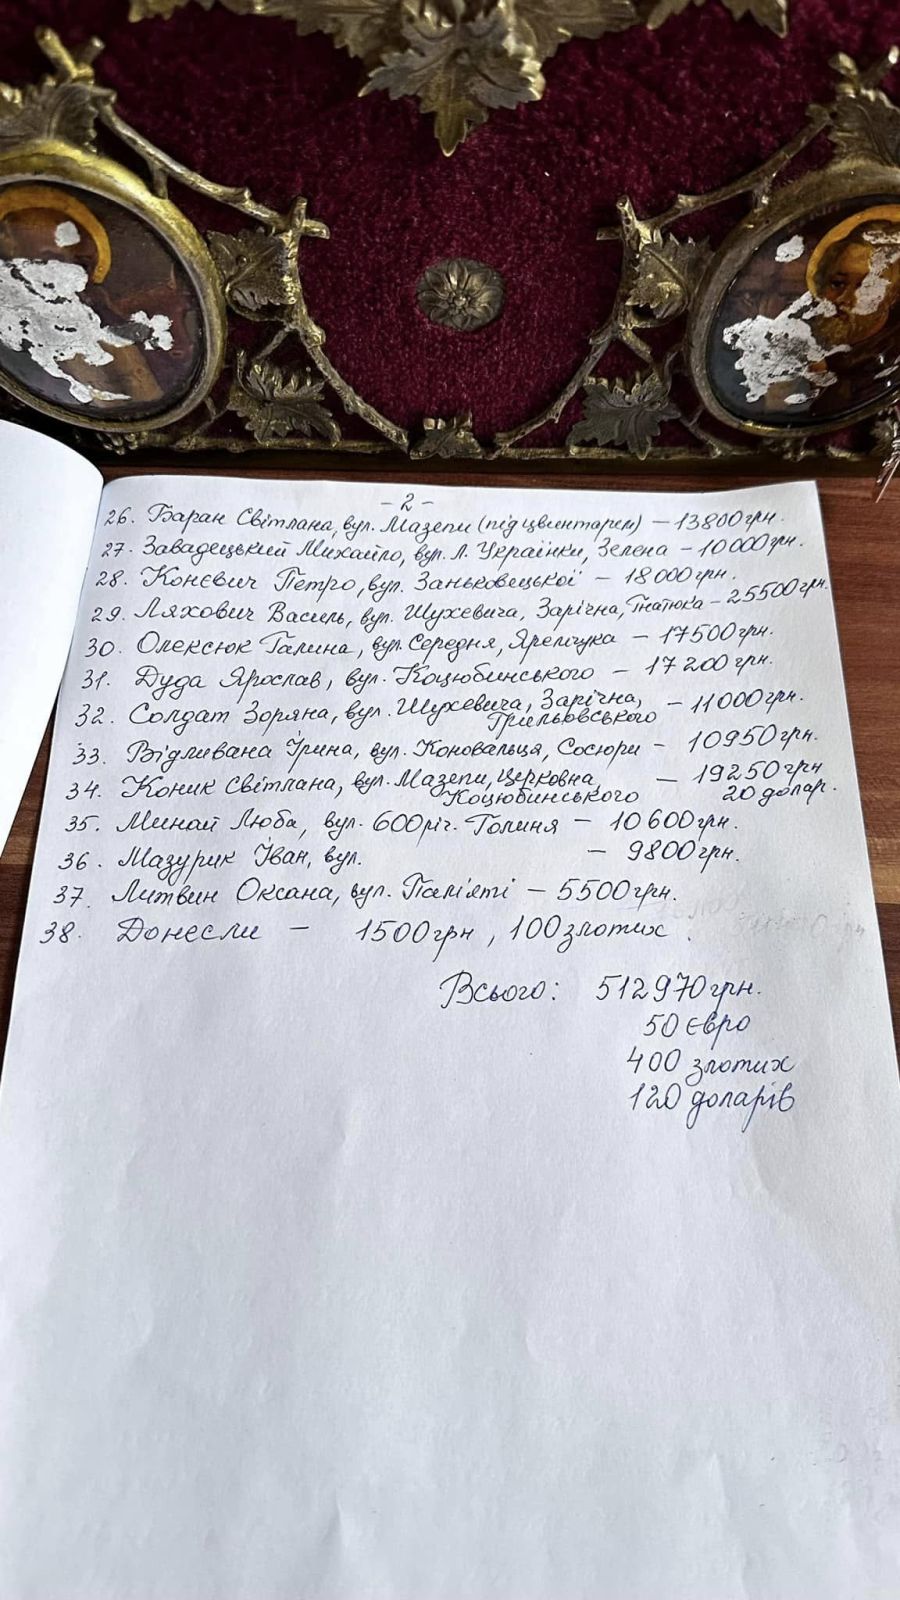 - 2 -
26. Баран Світлана, вул. Мазепи (під цвинтарем) – 13800 грн.
27. Завадецький Михайло, вул. Л. Українки, Зелена – 10000 грн.
28. Конєвич Петро, вул. Заньковецької – 18000 грн.
29. Ляхович Василь, вул. Шухевича, Зарічна, Гнатюка – 25500 грн.
30. Олексюк Галина, вул. Середня, Яремчука – 17500 грн.
31. Дуда Ярослав, вул. Коцюбинського – 17200 грн.
32. Солдат Зоряна, вул. Шухевича, Зарічна, – 11000 грн.
Трильовського
33. Відливана Ірина, вул. Коновальця, Сосюри – 10950 грн.
34. Коник Світлана, вул. Мазепи, Церковна, – 19250 грн
Коцюбинського 20 долар.
35. Минай Люба, вул. 600 річ. Голиня – 10600 грн.
36. Мазурик Іван, вул. – 9800 грн.
37. Литвин Оксана, вул. Пам'яті – 5500 грн.
38. Донесли – 1500 грн, 100 злотих.
Всього: 512970 грн.
50 євро
400 злотих
120 доларів